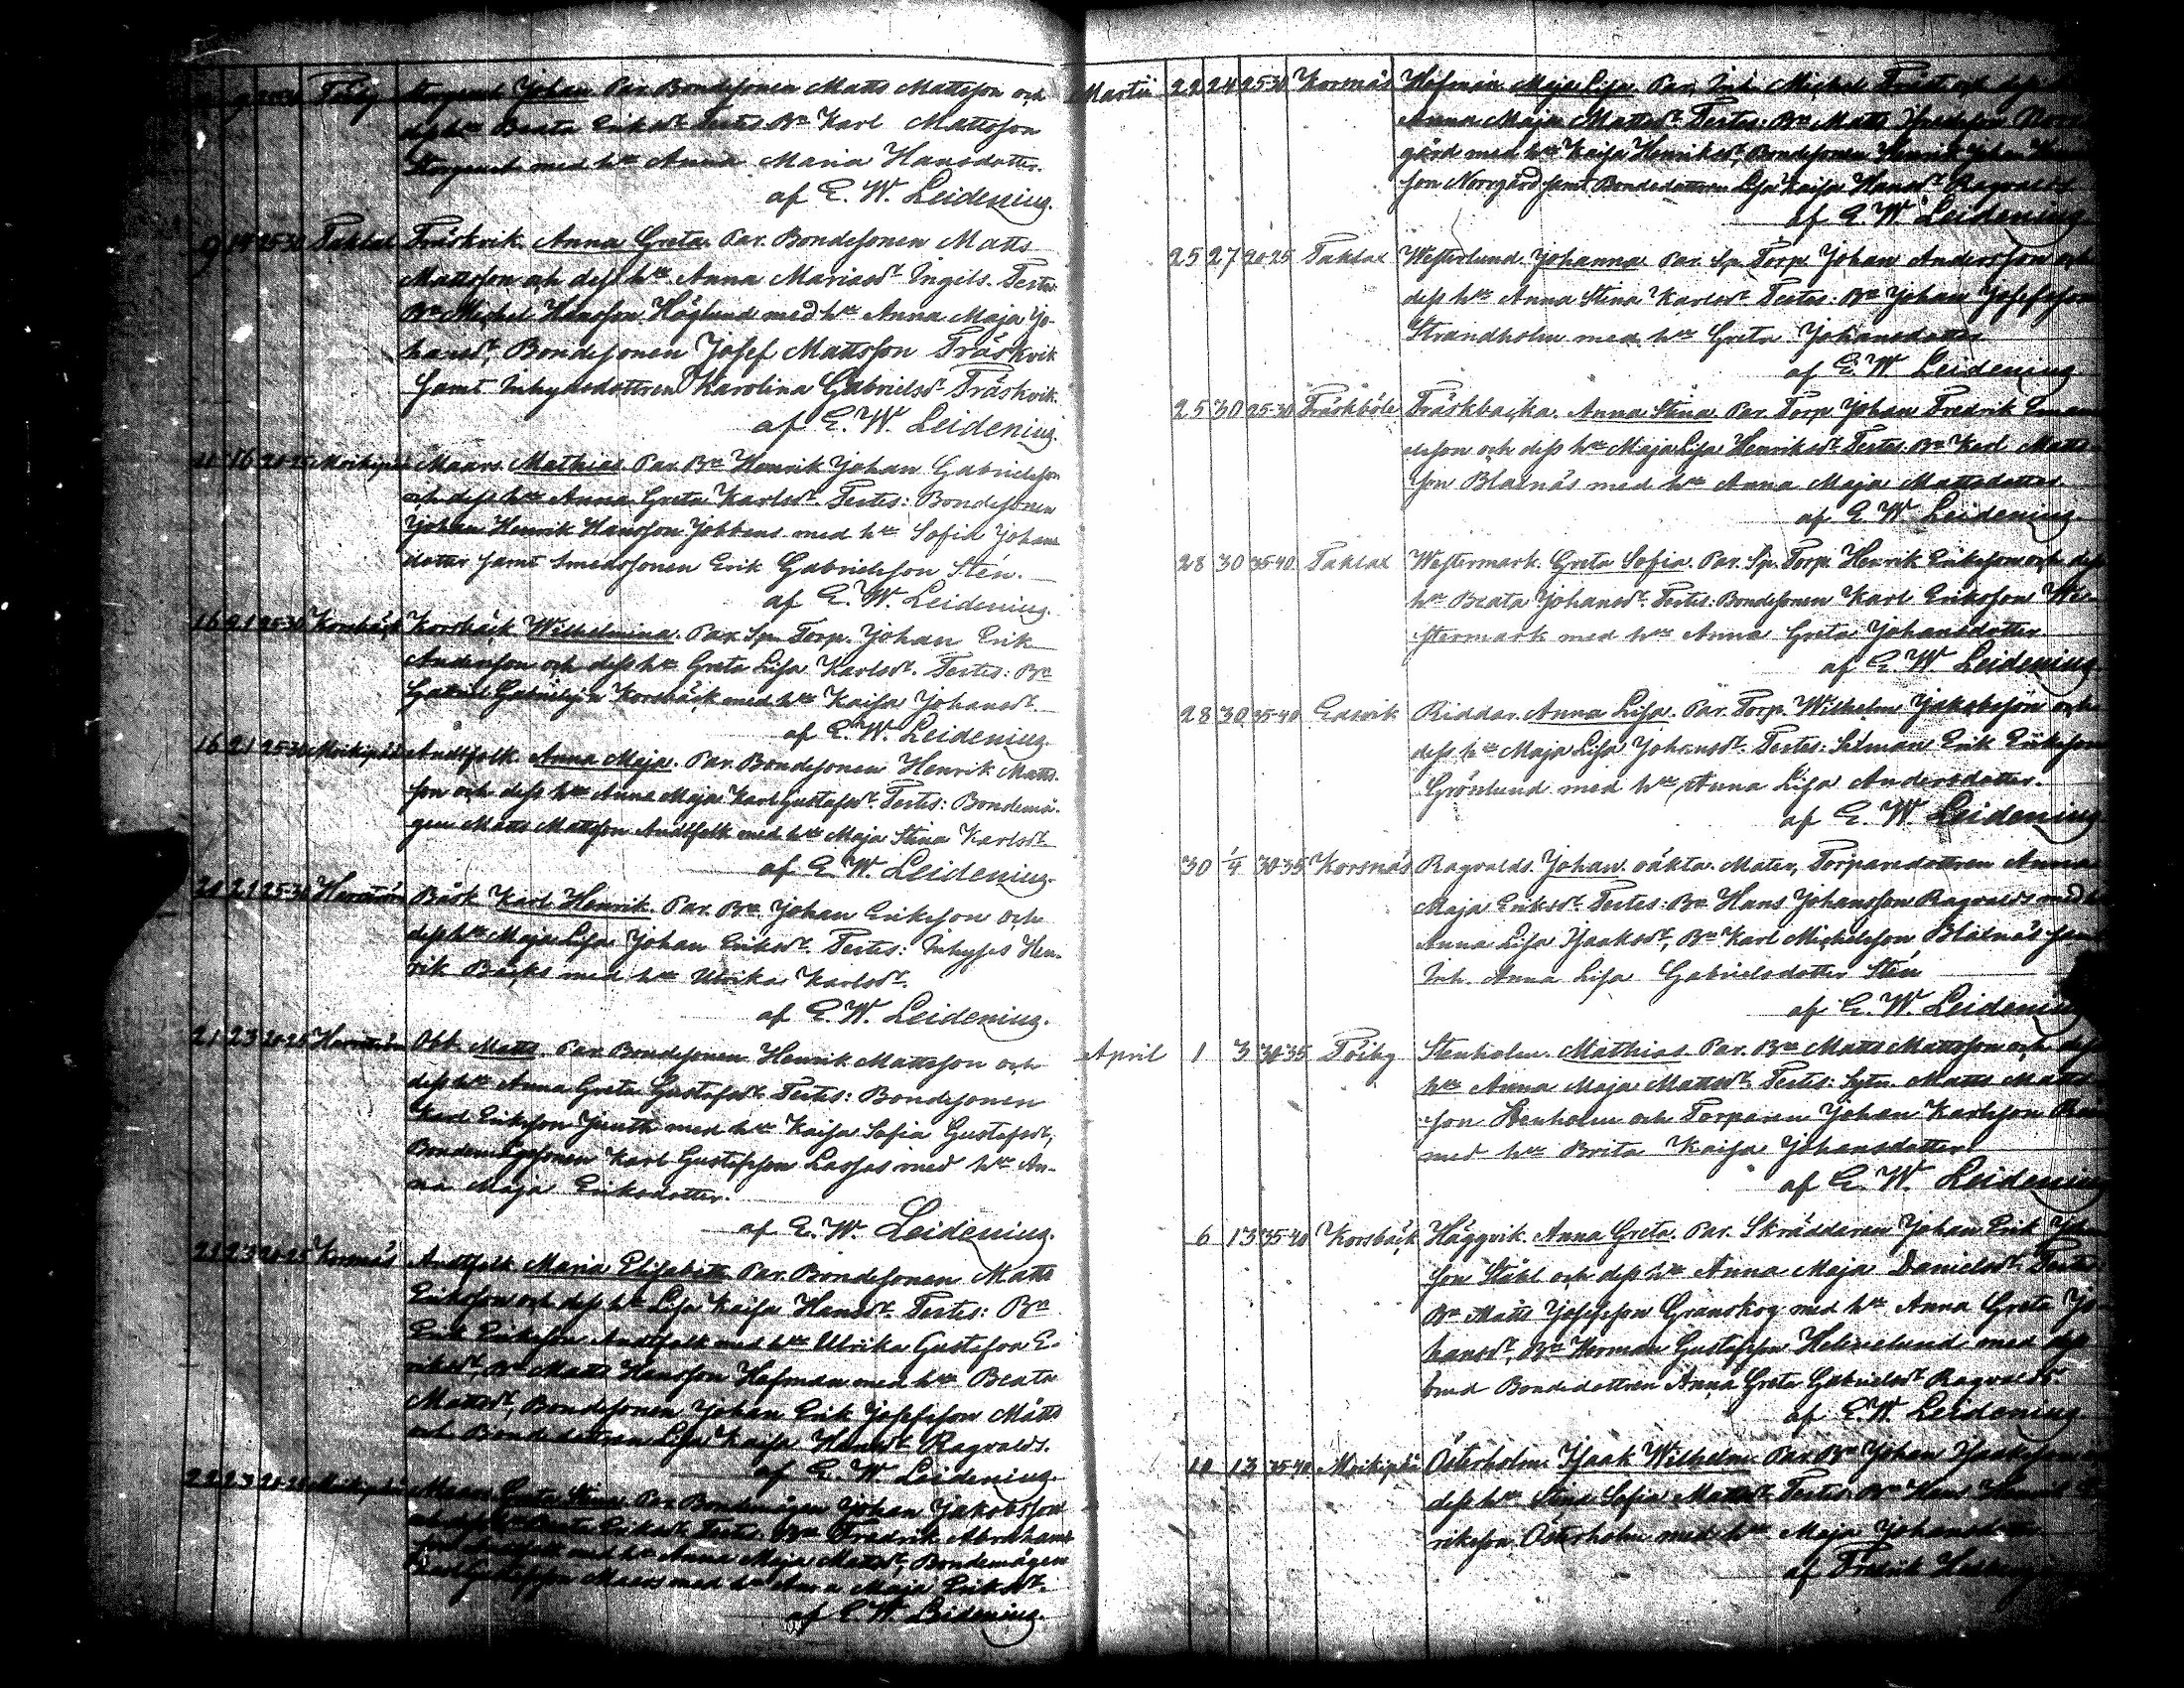 9 25-30 Töiby Johan Par. Bondesonen Matts Mattsson och
dess h:u Beata Eriksd:r Testes B:n Karl Mattsson
Storgeust med h:u Anna Maria Hansdotter.
af E. W. Leidenius.
9 14 25-30 Taklax Träskvik. Anna Greta. Par. Bondesonen Matts
Mattsson och dess h:u Anna Mariasd:r Ingels. Testes
B:n Michel Hansson Höglund med h:u Anna Maja Jo-
hansd:r, Bondesonen Josef Mattsson Träskvik
samt Inhysedottren Karolina Gabrielsd:r Träskvik.
af E. W. Leidenius.
16 20-25 Moikipää Maars. Mathias. Par. B:n Henrik Johan Gabrielsson
och dess h:u Anna Greta Karlsd:r. Testes: Bondesonen
Johan Henrik Hansson Jobbens med h:u Sofia Johans
dotter samt Smedssonen Erik Gabrielsson Stén.
af E. W. Leidenius.
16 21 25-30 Korsbäck Korsbäck Wilhelmina. Par. Sp. Torp. Johan Erik
Andersson och dess h:u Greta Lisa Karlsd:r. Testes: B:n
Gabriel Gabrielsson Korsbäck med h:u Kaisa Johansd:r
af E. W. Leidenius.
16 21 25-30 Moikipää Andtfolk. Anna Maja. Par. Bondesonen Henrik Matts-
son och dess h:u Anna Maja Karl Gustafsd:r. Testes: Bondemå-
gen Matts Mattsson Andtfolk med h:u Maja Stina Karlsd:r
af E. W. Leidenius.
21 25-30 Harrström Bäsk Karl Henrik. Par. B:n Johan Eriksson och
dess h:u Maja Lisa Johan Eriksd:r. Testes: Inhyses Hen-
rik Bäcks med h:u Ulrika Karlsd:r.
af E. W. Leidenius.
21 23 20-25 Harrström Matts. Par. Bondesonen Henrik Mattsson och
dess h:u Anna Greta Gustafsd:r Testes: Bondesonen
Karl Eriksson Juuth med h:u Kaisa Sofia Gustafsd:r,
Bondemågssonen Karl Gustafsson Lassas med h:u An-
na Maja Eriksdotter.
af E. W. Leidenius.
21 23 20-25 Korsnäs Andtfolk Maria Elisabeth Par. Bondesonen Matts
Eriksson och dess h:u Lisa Kaisa Hansd:r. Testes: B:n
Erik Eriksson Andtfolk med h:u Ulrika Gustafva E-
riksd:r, B:n Matts Hansson Hofman med h:u Beata
Mattsd:r, Bondesonen Johan Erik Josefsson Måtts
och Bondedottren Lisa Kaisa Hansd:r Ragvalds.
af E. W. Leidenius.
22 23 Moikipää Maars Greta Stina Par. Bondemågen Johan Jakobsson
och dess h:u Beata Eriksd:r Testes: B:n Fredrik Abrahams
son Andtfolk med h:u Anna Maja Mattsd:r, Bondemågen
Karl Gustafsson Maars med h:u Anna Maja Eriksd:r.
af E. W. Leidenius.
Martii 22 24 25-30 Korsnäs Hofman Maja Lisa. Par. Inh. Michel Träst och dess
Anna Maja Mattsd:r. Testes: B:n Matts
gård med h:u Kaisa Henriksd:r, Bondesonen Henrik Johan
son Norrgård samt Bondedottren Lisa Kaisa Hansd:r Ragvalds
af E W Leidenius
25 27 20-25 Taklax Westerlund. Johanna. Par. Sp. Torp. Johan Andersson och
dess h:u Anna Stina Karlsd:r. Testes: B:n Johan Josefsson
Strandholm med h:u Greta Johansdotter
af E. W Leidenius
25 30 25-30 Träskböle Träskbacka. Anna Stina Par. Torp. Johan Fredrik Eman
uelsson och dess h:u Maja Lisa Henriksd:r. Testes: B:n Karl Matts-
son Blaxnäs med h:u Anna Maja Mattsdotter.
af E W Leidenius.
28 30 35-40 Taklax Westermark. Greta Sofia. Par. Sp. Torp. Henrik Eriksson och dess
h:u Beata Johansd:r. Testes: Bondesonen Karl Eriksson We-
stermark med h:u Anna Greta Johansdotter.
af E W Leidenius
28 30 35-40 Edsvik Riddar. Anna Lisa. Par. Torp. Wilhelm Jakobsson och
dess h:u Maja Lisa Johansd:r. Testes: Sexman Erik Eriksson
Grönlund med h:u Anna Lisa Andersdotter.
af E. W. Leidenius
30 1/4 30-35 Korsnäs Ragvalds. Johan. oäkta. Mater, Torparedottren Anna
Maja Eriksd:r. Testes: B:n Hans Johansson Ragvalds med h
Anna Lisa Isaaksd:r, B:n Karl Michelsson Blaxnäs samt
Inh. Anna Lisa Gabrielsdotter Stén
af E. W. Leidenius
April 1 3 30-35 Töiby Stenholm. Mathias. Par. B:n Matts Mattsson och dess
h:u Anna Maja Mattsd:r. Testes: Sytn. Matts Matts
son Stenholm och Torparen Johan Karlsson
med h:u Brita Kaisa Johansdotter.
af E. W. Leidenius
6 13 35-40 Korsbäck Häggvik. Anna Greta. Par. Skräddaren Johan Erik Johan
son Ståhl och dess h:u Anna Maja Danielsd:r. Testes
B:n Matts Josefsson Granskog med h:u Anna Greta Jo-
hansd:r, B:n Herman Gustafsson Helinelund med
brud Bondedottren Anna Greta Gabrielsd:r Ragvalds.
af E. W. Leidenius
10 13 35-40 Moikipää Österholm. Isaak Wilhelm. Par. B:n Johan Isaksson
dess h:u Stina Sofia Mattsd:r. Testes: B:n
riksson Österholm med h:u Maja Johansdotter
af Fredrik